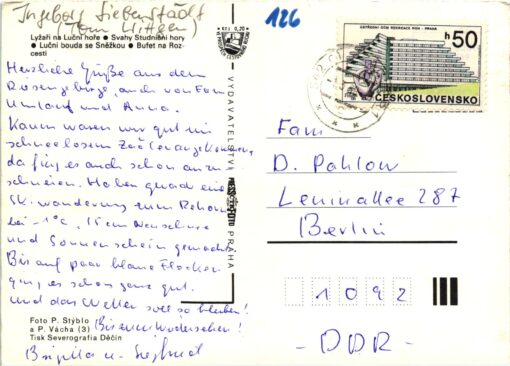 Ingeborg Siebenstädt
(Tom Wittgen)
Lyžaři na Luční hoře • Svahy Studniční hory
• Luční bouda se Sněžkou • Bufet na Roz-
cestí
Herzliche Grüße aus dem
Riesengebirge, auch von Fam.
Umlauf und Anna.
Kaum waren wir gut im
schneelosem angekommen,
da fing es auch schon an zu
schneien. Haben grad eine
Skiwanderung zum
bei -1°C, 15cm Neuschnee
und Sonnenschein gemacht.
Bis auf paar blaue Flecken
ging es schon ganz gut.
Und das Wetter soll so bleiben!
Bis zum Wiedersehen!
Birgitta u. Siegfried
Foto P. Stýblo
a P. Vácha (3)
Tisk Severografia Děčín
Kčs 0,20
VYDAVATELSTVÍ
PRESSFOTO
PRAHA
126
ÚSTŘEDNÍ DŮM REKREACE ROH - PRAHA
h 50
ČESKOSLOVENSKO
Fam
D. Pahlow
Leninallee 287
Berlin
1092
- DDR -